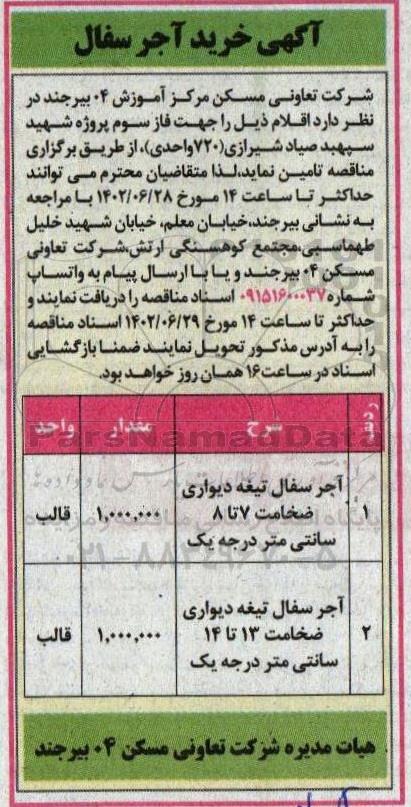 آگهی خرید آجر سفال
شرکت تعاونی مسکن مرکز آموزش ۰۴ بیرجند در
نظر دارد اقلام ذیل را جهت فاز سوم پروژه شهید
سپهبد صیاد شیرازی(۷۲۰واحدی)، از طریق برگزاری
مناقصه تامین نماید،لذا متقاضیان محترم می توانند
حداکثر تا ساعت ۱۴ مورخ ۱۴۰۲/۰۶/۲۸ با مراجعه
به نشانی بیرجند،خیابان معلم، خیابان شهید خلیل
طهماسبی،مجتمع کوهسنگی ارتش،شرکت تعاونی
مسکن ۰۴ بیرجند و یا با ارسال پیام به واتساپ
شماره ۰۹۱۵۱۶۰۰۰۳۷ اسناد مناقصه را دریافت نمایند و
حداکثر تا ساعت ۱۴ مورخ ۱۴۰۲/۰۶/۲۹ اسناد مناقصه
را به آدرس مذکور تحویل نمایند ضمنا بازگشایی
اسناد در ساعت۱۶ همان روز خواهد بود.
ردیف شرح مقدار واحد
ParsNamadData
آجر سفال تیغه دیواری
۱ ضخامت ۷تا ۸ ۱,۰۰۰,۰۰۰ قالب
سانتی متر درجه یک
۰۲۱-۸۸۳۴۹۶۷۰-۵
آجر سفال تیغه دیواری
۲ ضخامت ۱۳ تا ۱۴ ۱,۰۰۰,۰۰۰ قالب
سانتی متر درجه یک
هیات مدیره شرکت تعاونی مسکن ۰۴ بیرجند